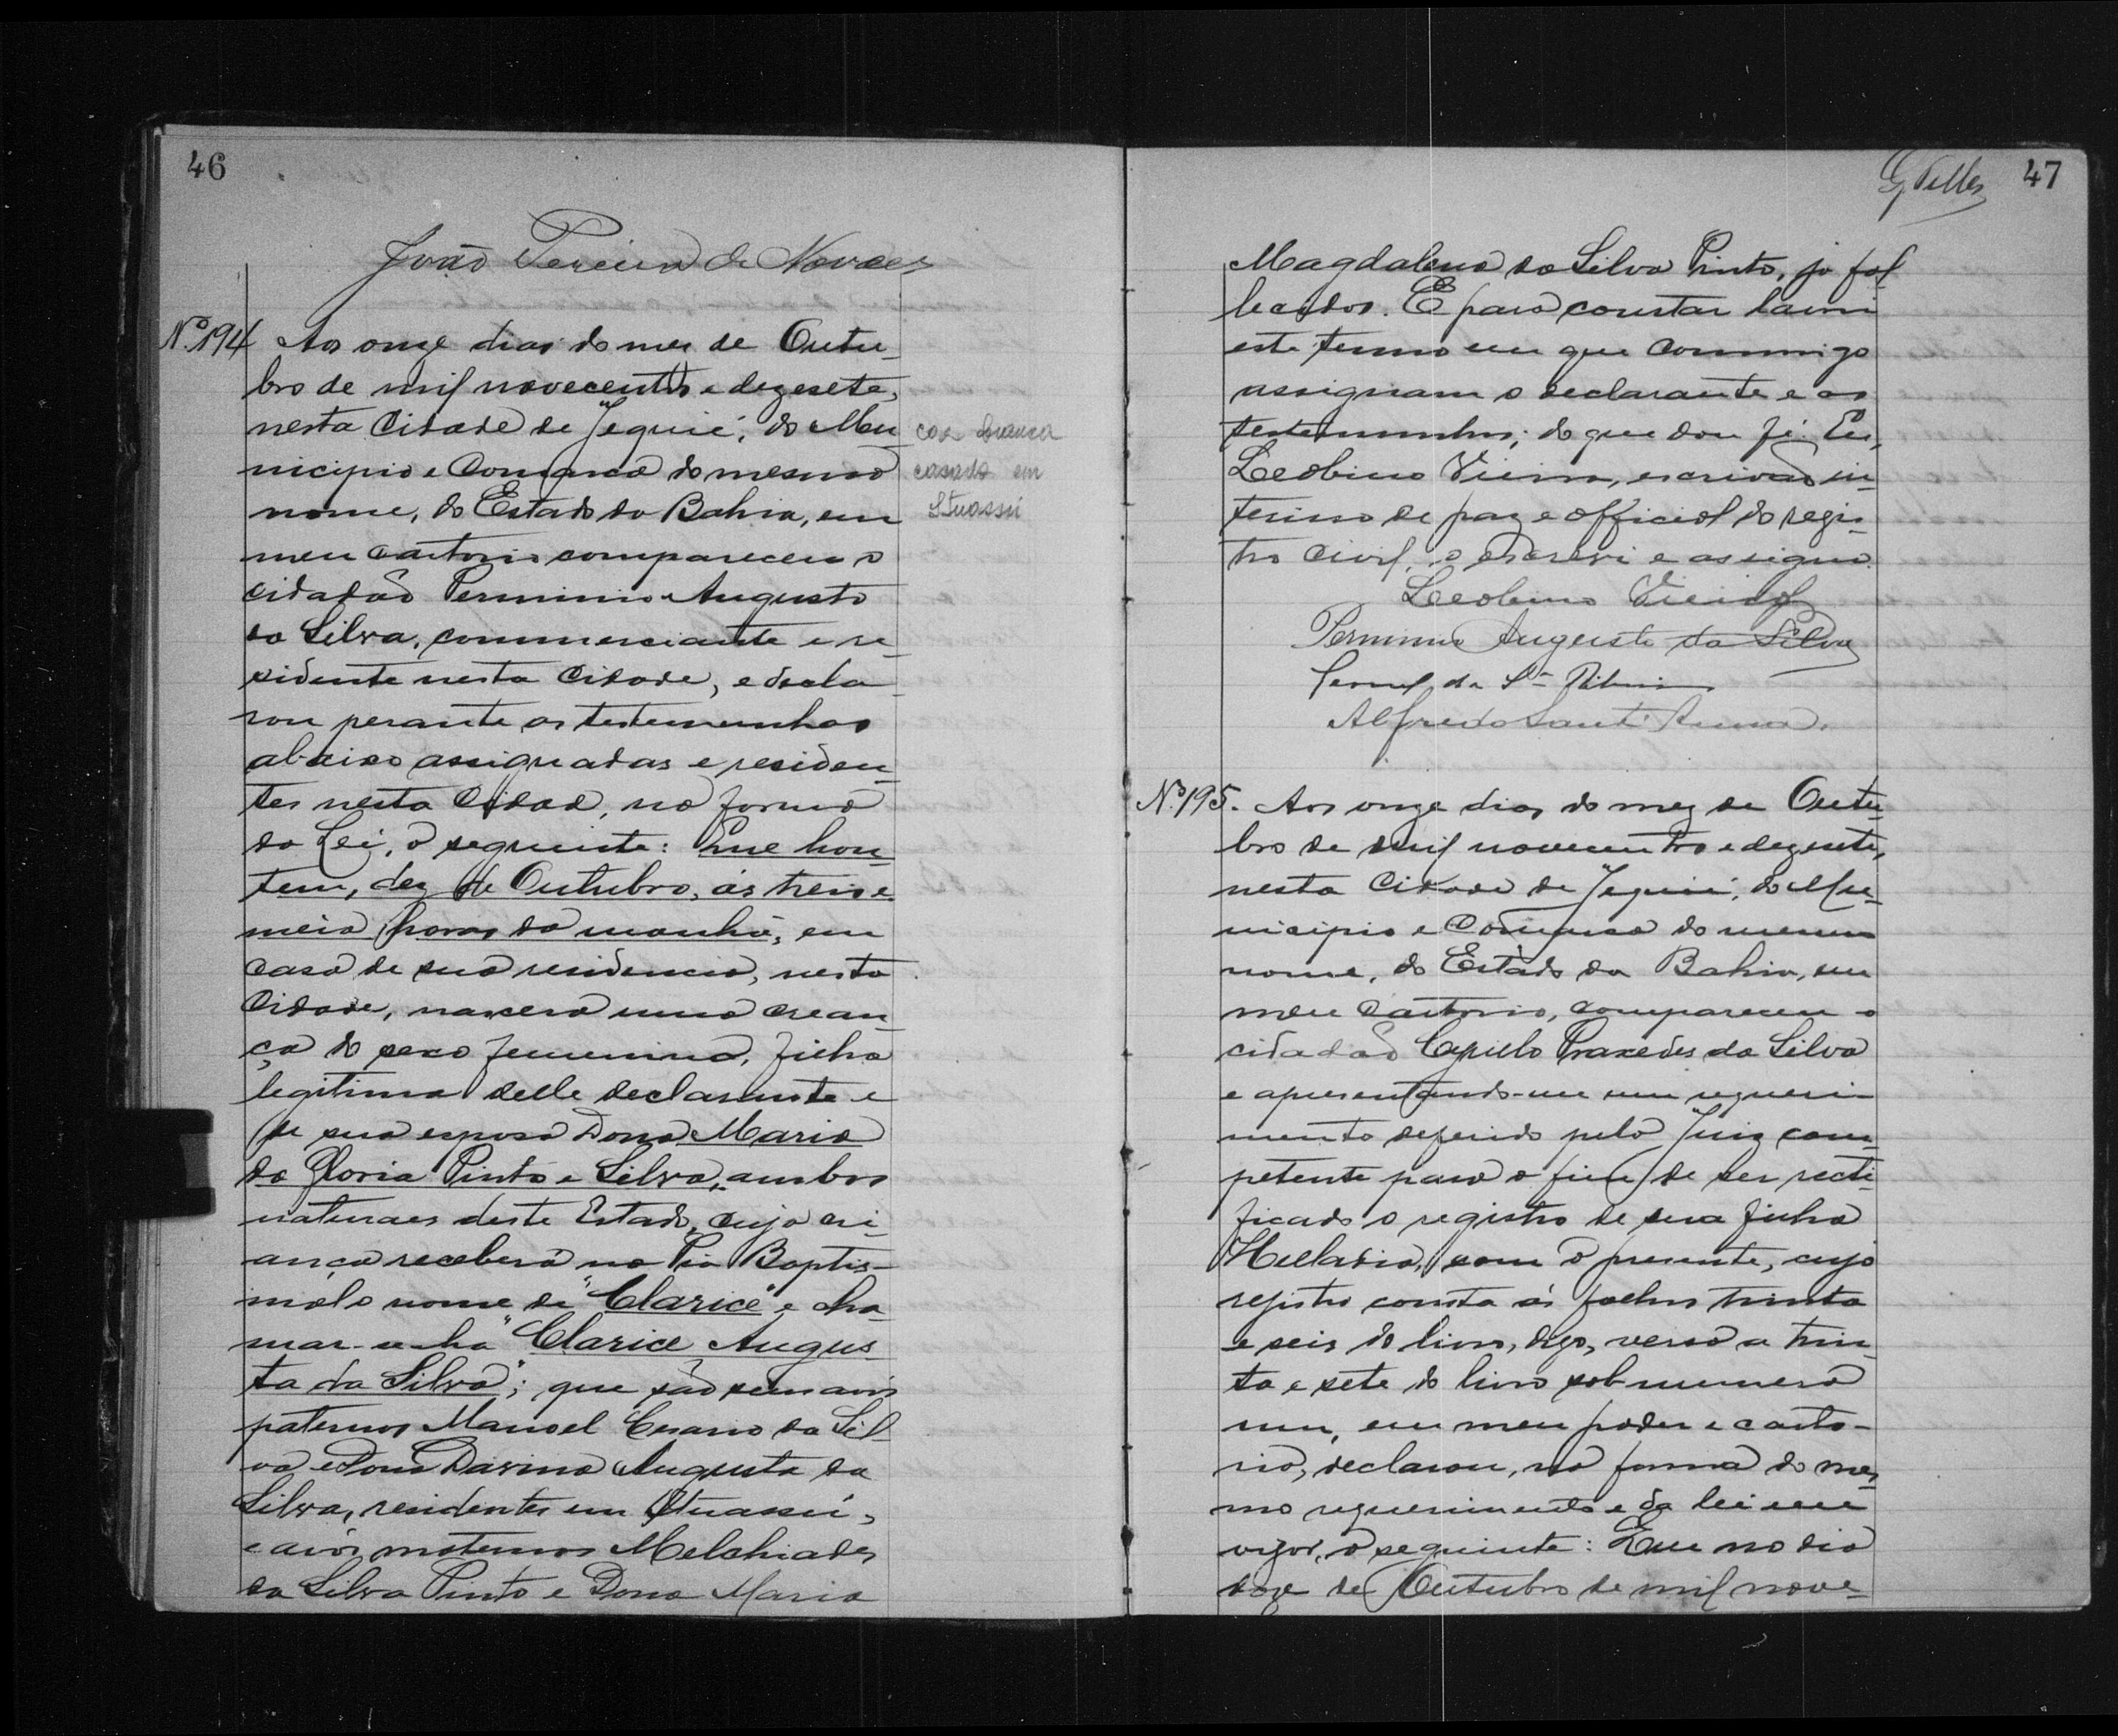 46
João Pereira de Novaes
Nº 194 Aos onze dias do mez de Outu-
bro de mil novecentos e dezesete,
nesta Cidade de Jequié, do Mu
nicipio e Comarca do mesmo
nome, do Estado da Bahia, em
meu cartorio compareceu o
cidadão Perminio Augusto
da Silva, commerciante e re-
sidente nesta Cidade, e decla-
rou perante as testemunhas
abaixo assignadas e residen-
tes nesta Cidade, na forma
da Lei, o seguinte: Que hon-
tem, dez de Outubro, ás treis e
meia horas da manhã, em
casa de sua residencia, nesta
Cidade, nascera uma crean-
ça do sexo femenino, filha
legitima delle declarante e
de sua esposa Dona Maria
da Gloria Pinto e Silva, ambos
naturaes deste Estado, cuja cri-
ança receberá na Pia Baptis-
mal o nome de "Clarice" e cha-
mar-se-ha "Clarice Augus-
ta da Silva"; que são seus avós
paternos Manoel Cesario da Sil-
va e Dona Davina Augusta da
Silva, residentes em Ituassú,
e avós maternos Melchiades
da Silva Pinto e Dona Maria
côr branca
casado em
Ituassú
G Telles 47
Magdalena da Silva Pinto, já fal-
lecidos. E para constar lavrei
este termo em que commigo
assignam o declarante e as
testemunhas; do que dou fé. Eu,
Leobino Vieira, escrivão in-
terino de paz e official do regis-
tro civil, o escrevi e assigno.
Leobino Vieira
Perminio Augusto da Silva
da Sª Ribeiro
Alfredo Sant'Anna.
Nº 195. Aos onze dias do mez de Outu-
bro de mil novecentos e dezesete,
nesta Cidade de Jequié, do Mu-
nicipio e Comarca do mesmo
nome, do Estado da Bahia, em
meu Cartorio, compareceu o
cidadão Praxedes da Silva
e apresentando-me um requeri-
mento deferido pelo Juiz com-
petente para o fim de ser recti-
ficado o registro de sua filha
com o presente, cujo
registro consta ás folhas trinta
e seis do livro, digo, verso a trin-
ta e sete do livro sob numero
um, em meu poder e carto-
rio, declarou, na forma do mes-
mo requerimento e da lei em
vigor, o seguinte: Que no dia
doze de Outubro de mil nove-